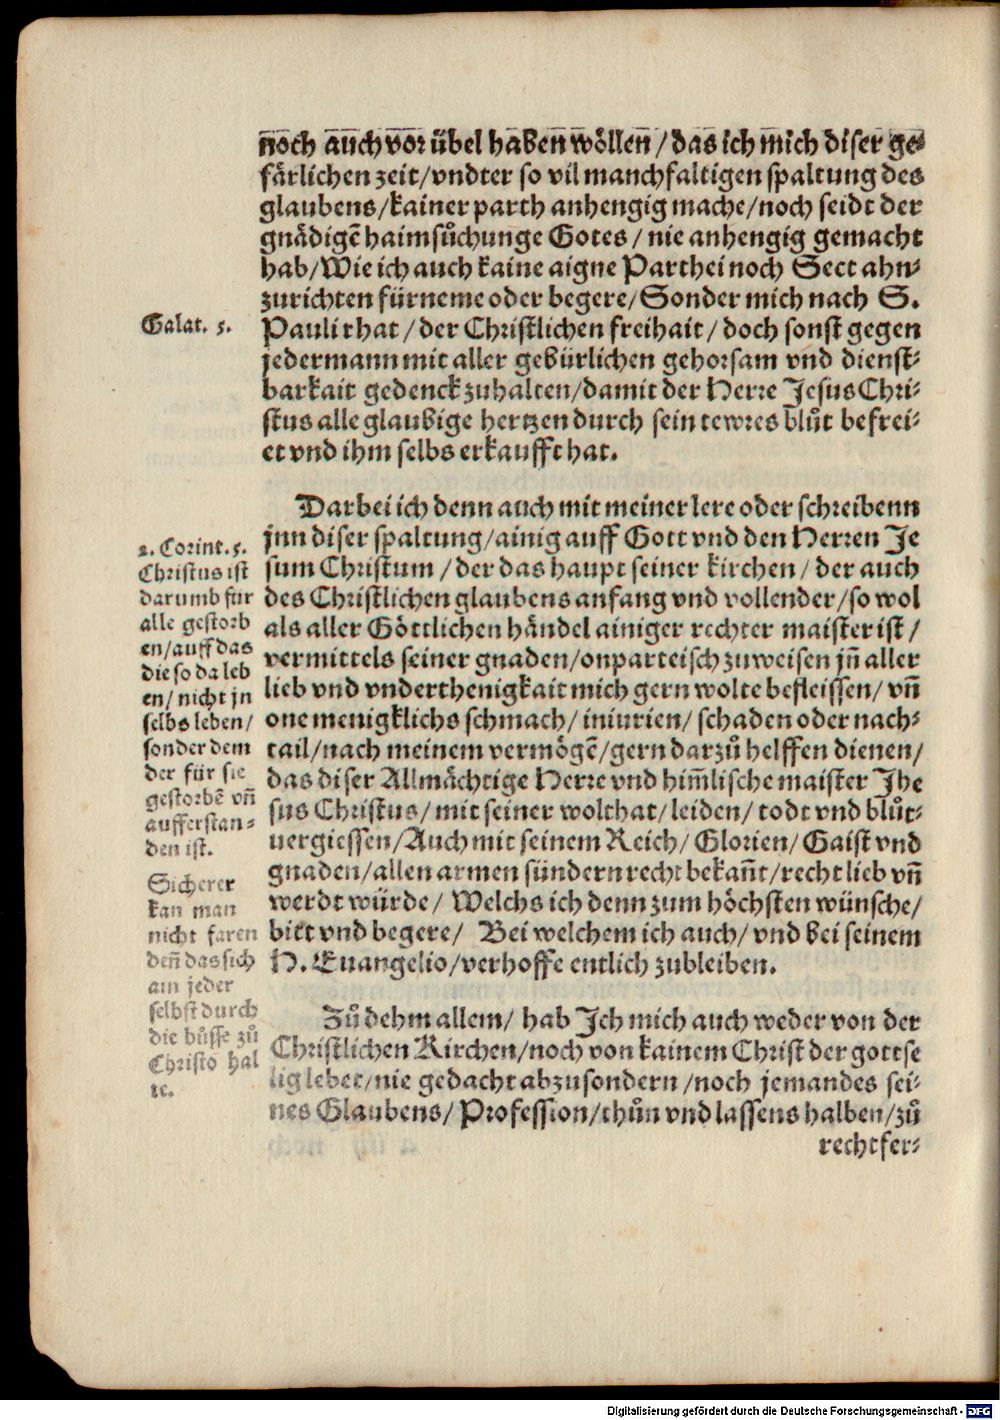 noch auch vor übel haben wöllen / das ich mich diser ge⸗
färlichen zeit/vndter so vil manchfaltigen spaltung des
glaubens/kainer parth anhengig mache/noch seidt der
gnädigẽ haimsůchunge Gotes / nie anhengig gemacht
hab/Wie ich auch kaine aigne Parthei noch Sect ahn⸗
zurichten fürneme oder begere/Sonder mich nach S.
Galat. 5.
Pauli rhat / der Christlichen freihait / doch sonst gegen
jedermann mit aller gebürlichen gehorsam vnd dienst⸗
barkait gedenck zuhalten/damit der Herre Jesus Chri⸗
stus alle glaubige hertzen durch sein tewres blůt befrei⸗
et vnd ihm selbs erkaufft hat.
Darbei ich denn auch mit meiner lere oder schreibenn
jnn diser spaltung/ainig auff Gott vnd den Herren Je
sum Christum / der das haupt seiner kirchen / der auch
des Christlichen glaubens anfang vnd vollender/so wol
als aller Göttlichen händel ainiger rechter maister ist /
vermittels seiner gnaden/onparteisch zuweisen jñ aller
lieb vnd vnderthenigkait mich gern wolte befleissen/ vñ
one menigklichs schmach/ iniurien/ schaden oder nach⸗
tail/nach meinem vermögẽ/gern darzů helffen dienen/
das diser Allmächtige Herre vnd him̃lische maister Jhe
sus Christus/ mit seiner wolthat/ leiden/ todt vnd blůt⸗
uergiessen/Auch mit seinem Reich/ Glorien/ Gaist vnd
gnaden/allen armen sündern recht bekañt/recht lieb vñ
werdt würde/ Welchs ich denn zum höchsten wünsche/
bitt vnd begere/ Bei welchem ich auch/ vnd bei seinem
H. Euangelio/verhoffe entlich zubleiben.
2. Corint. 5.
Christus ist
darumb für
alle gestorb
en/auff das
die so da leb
en/ nicht jn
selbs leben/
sonder dem
der für sie
gestorbẽ vñ
aufferstan⸗
den ist.
Sicherer
kan man
nicht faren
deñ das sich
ain jeder
selbst durch
die bůsse zů
Christo hal
te.
Zů dehm allem/ hab Jch mich auch weder von der
Christlichen Kirchen/noch von kainem Christ der gottse
lig lebet/nie gedacht abzusondern /noch jemandes sei⸗
nes Glaubens/ Profession/thůn vnd lassens halben/zů
rechtfer⸗
Digitalisierung gefördert durch die Deutsche Forschungsgemeinschaft - DFG